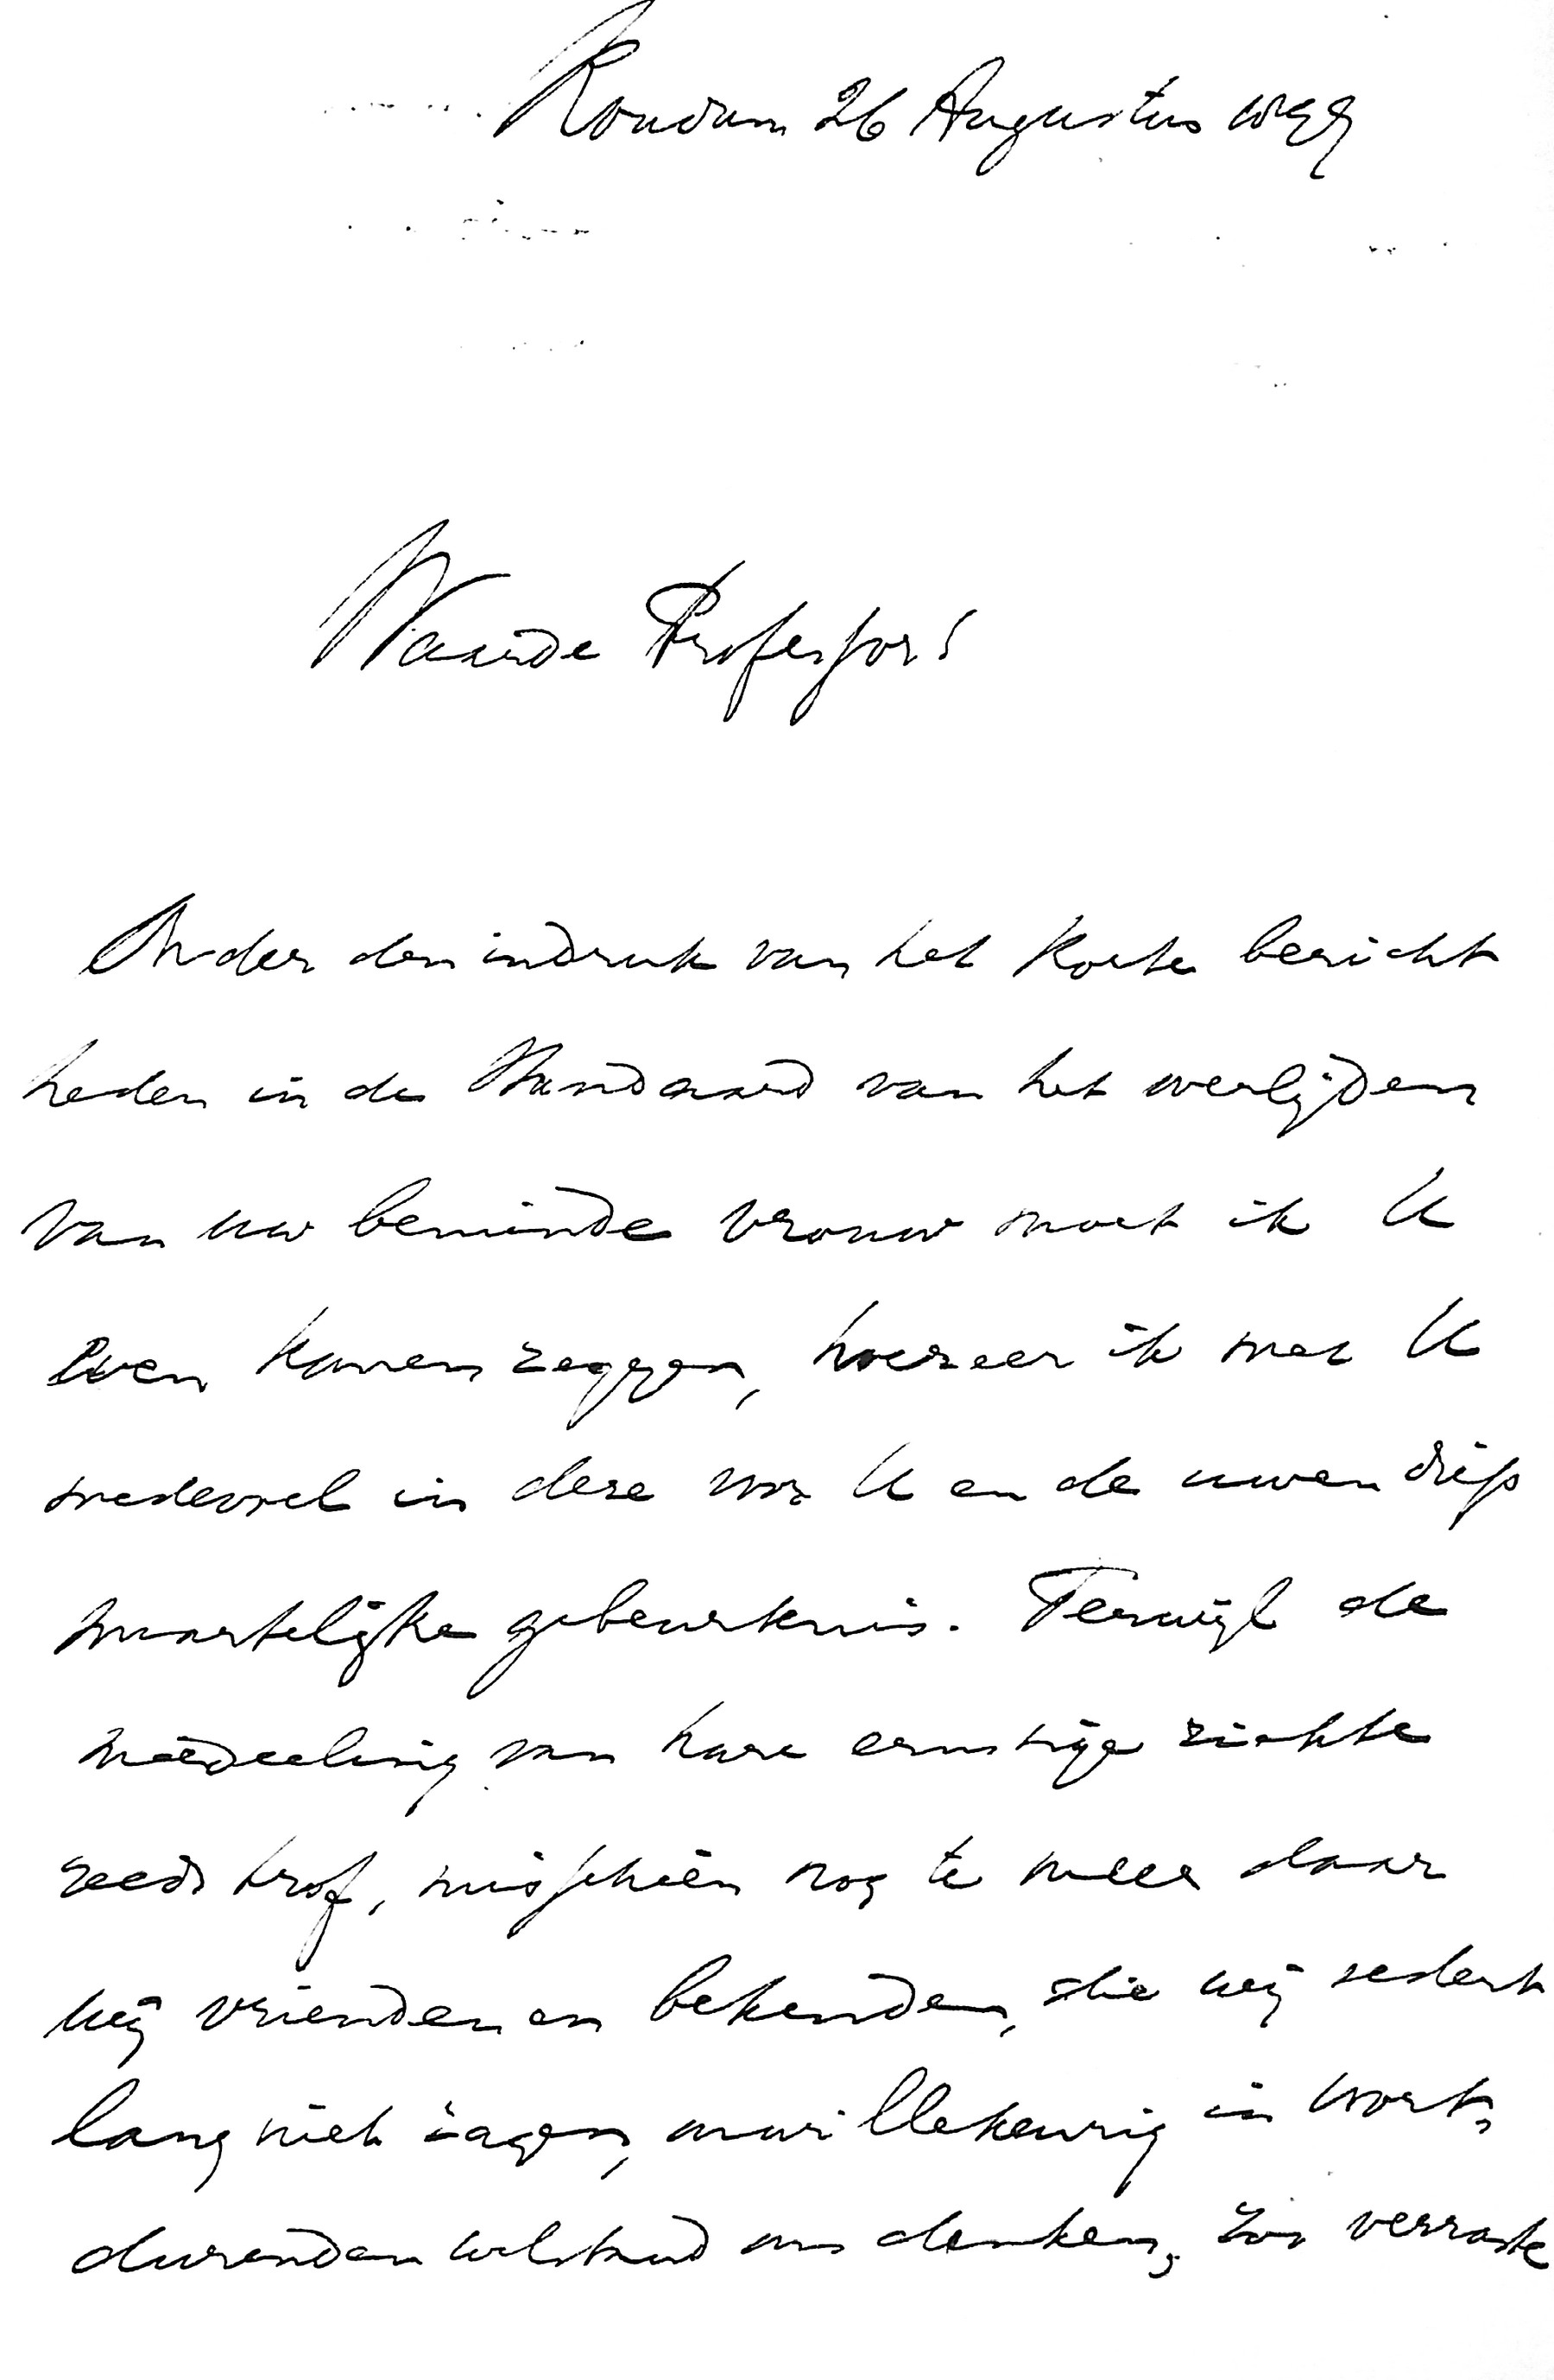 26 Augustus 1899
Waarde Professor!
Onder den indruk van het korte bericht
heden in de Standaard van het overlijden
van uw beminde vrouw moet ik U
even komen zeggen, hoezeer ik met U
medevoel in deze voor U en de uwen diep
smartelijke gebeurtenis. Terwijl de
mededeeling van hare ernstige ziekte
reeds trof, misschien nog te meer daar
wij vrienden en bekenden, die wij sedert
lang niet zagen, onwillekeurig in voort-
durenden welstand ons denken, zoo verraste